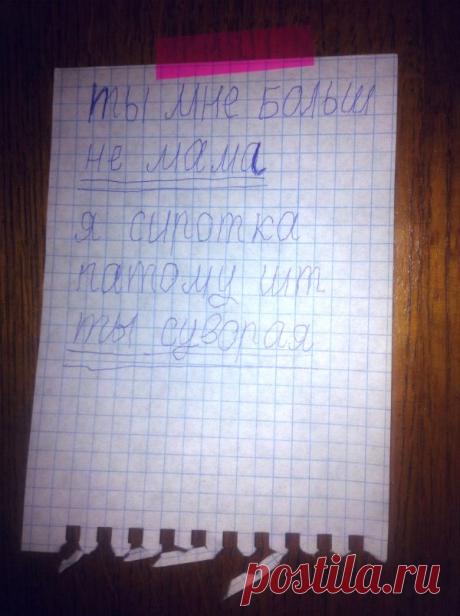 ты мне больш
не мама
я сиротка
патому шт
ты суворая
postila.ru